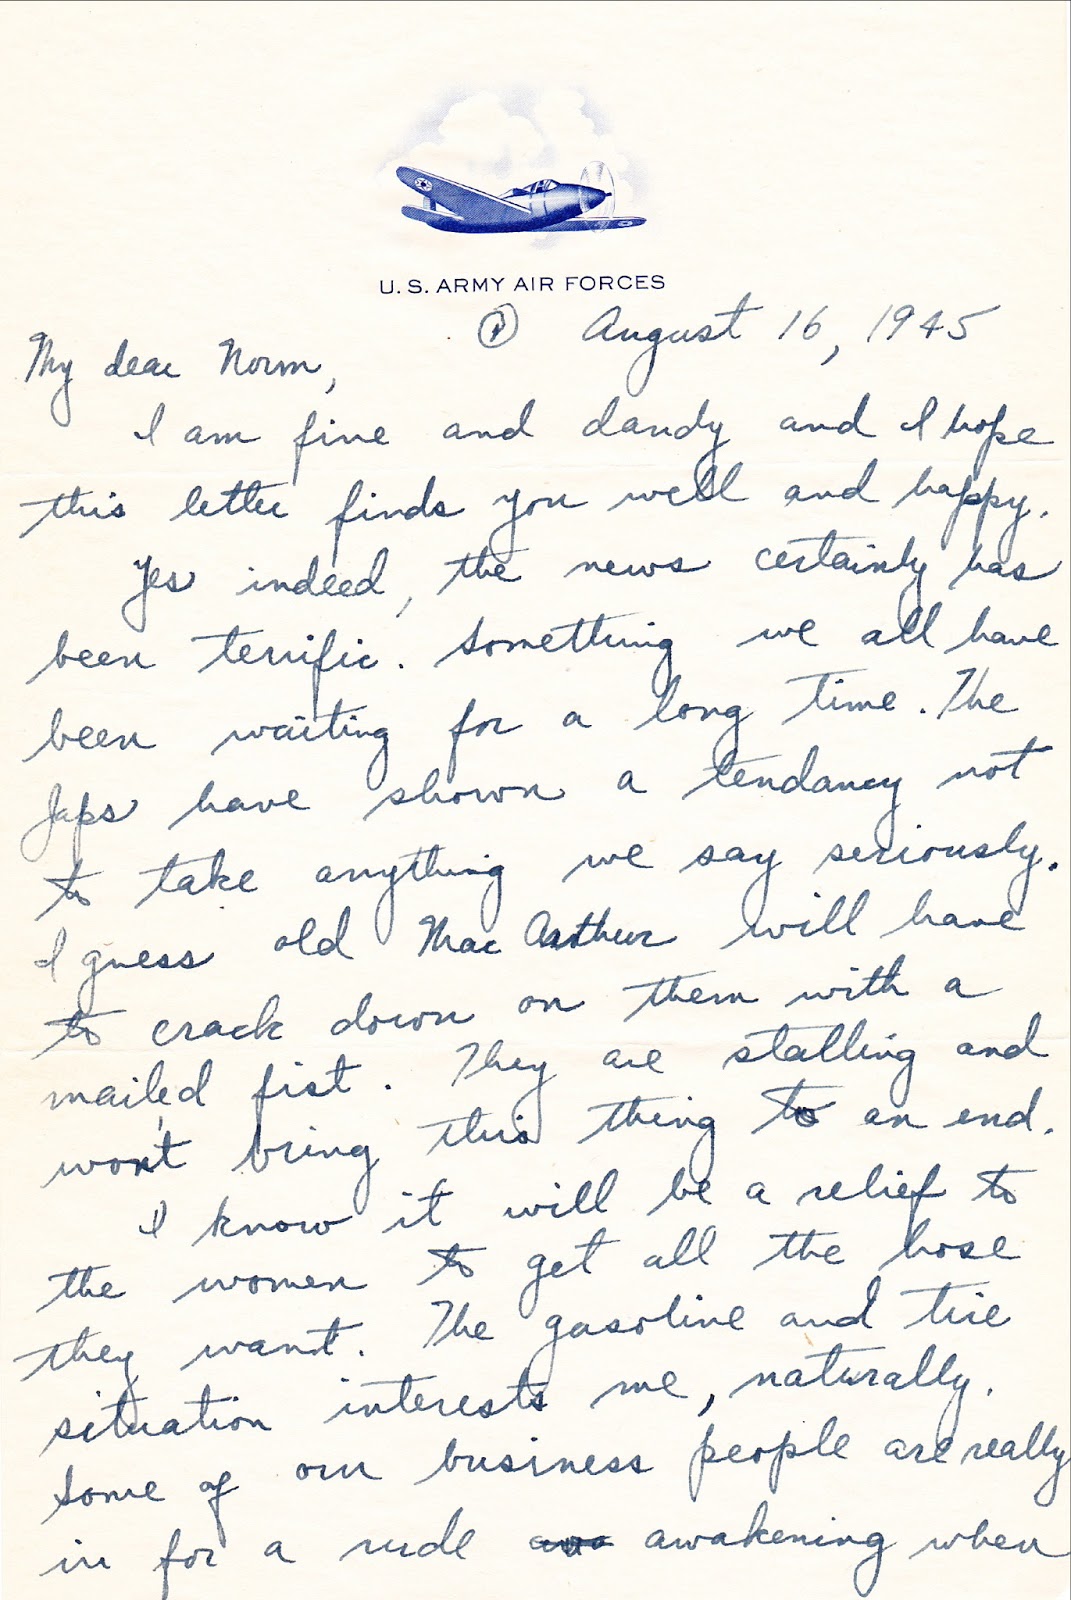 U. S. ARMY AIR FORCES
① August 16, 1945
My dear Norm,
I am fine and dandy and I hope
this letter finds you well and happy.
Yes indeed, the news certainly has
been terrific. Something we all have
been waiting for a long time. The
Japs have shown a tendancy not
to take anything we say seriously.
I guess old Mac Arthur will have
to crack down on them with a
mailed fist. They are stalling and
won't bring this thing to an end.
I know it will be a relief to
the women to get all the hose
they want. The gasoline and tire
situation interests me, naturally.
Some of our business people are really
in for a rude awakening when